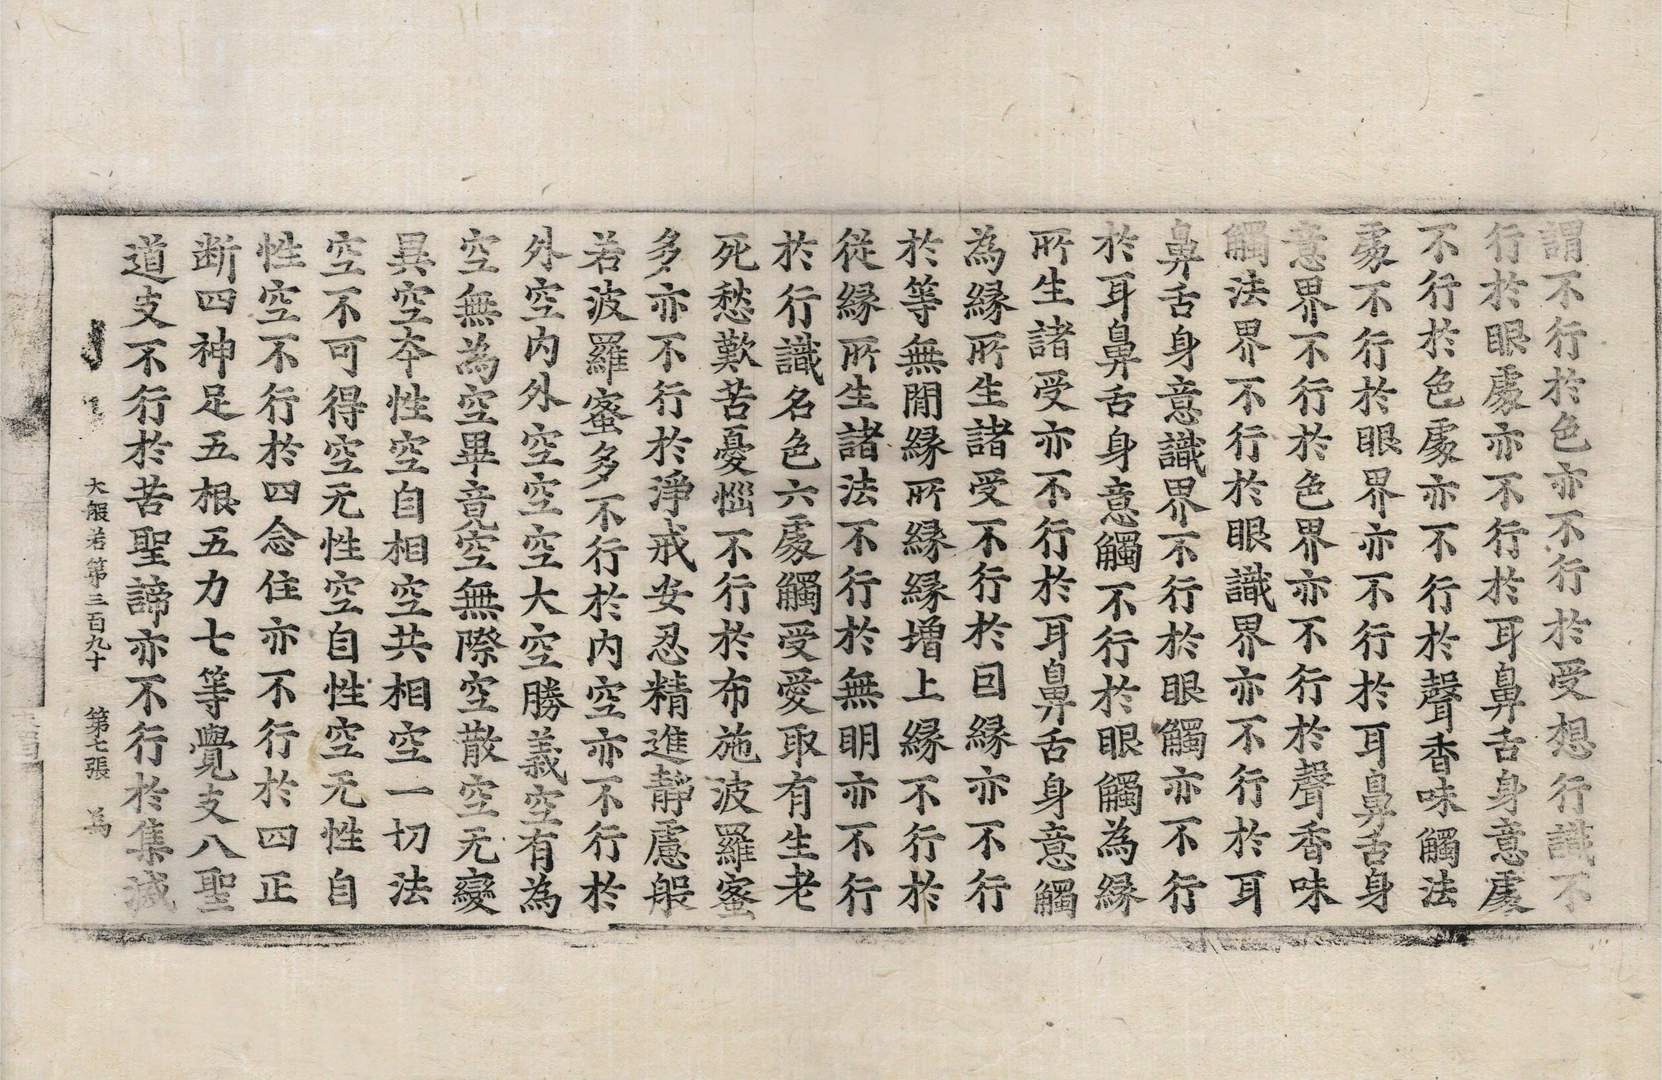 謂不行於色亦不行於受想行識不
行於眼處亦不行於耳鼻舌身意處
不行於色處亦不行於聲香味觸法
處不行於眼界亦不行於耳鼻舌身
意界不行於色界亦不行於聲香味
觸法界不行於眼識界亦不行於耳
鼻舌身意識界不行於眼觸亦不行
於耳鼻舌身意觸不行於眼觸為緣
所生諸受亦不行於耳鼻舌身意觸
為緣所生諸受不行於因緣亦不行
於等無間緣所緣緣增上緣不行於
從緣所生諸法不行於無明亦不行
於行識名色六處觸受愛取有生老
死愁歎苦憂惱不行於布施波羅蜜
多亦不行於淨戒安忍精進靜慮般
若波羅蜜多不行於內空亦不行於
外空內外空空空大空勝義空有為
空無為空畢竟空無際空散空无變
異空本性空自相空共相空一切法
空不可得空无性空自性空无性自
性空不行於四念住亦不行於四正
断四神足五根五力七等覺支八聖
道支不行於苦聖諦亦不行於集滅
大般若第三百九十 第七張 為